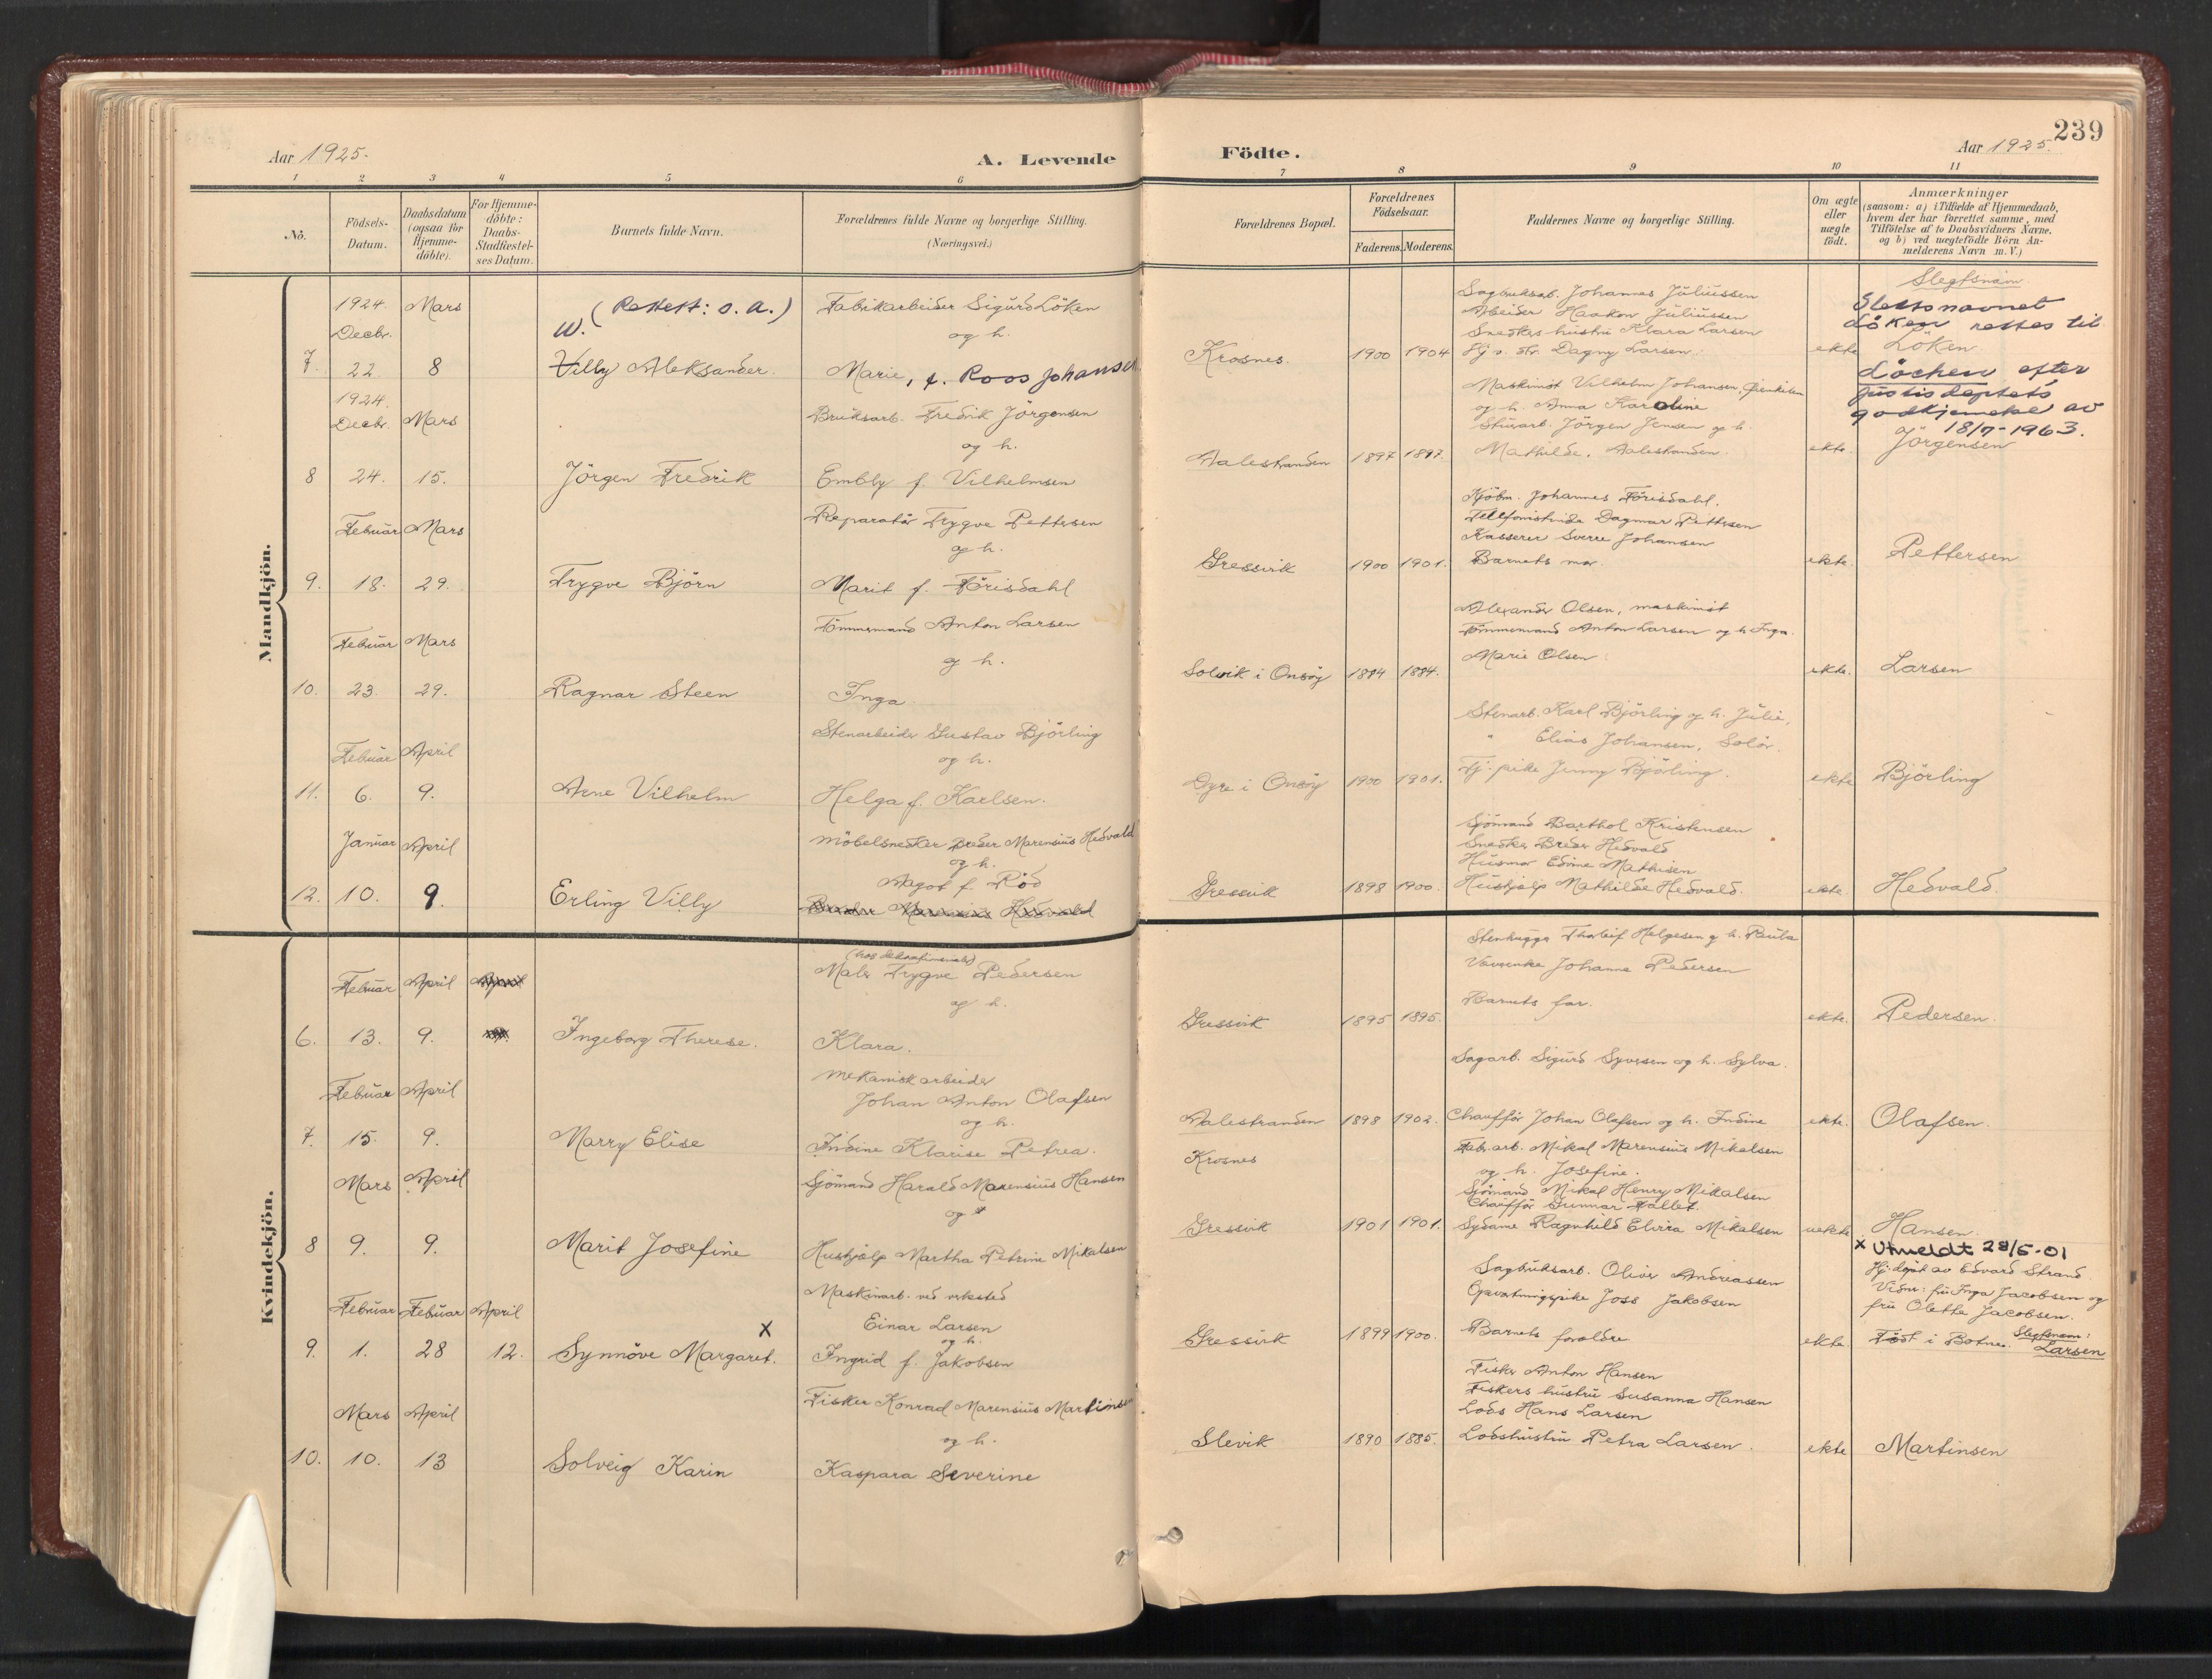 239
Aar 1925.
A. Levende
Födte.
Aar 1925.
1 2 3 4 5 6 7 8 9 10 11
No.
Födsels-
Datum.
Daabsdatum
(ogsaa for
Hjemme-
döbte).
For Hjemme-
döbte:
Daabs-
Stadfæstel-
ses Datum.
Barnets fulde Navn.
Forældrenes fulde Navne og borgerlige Stilling.
(Næringsvei.)
Forældrenes Bopæl.
Forældrenes
Födselsaar.
Faderens. Moderens.
Faddernes Navne og borgerlige Stilling.
Om ægte
eller
uægte
födt.
Anmærkninger
(saasom: a) i Tilfælde af Hjemmedaab,
hvem der har forrettet samme, med
Tilföielse af to Daabsvidners Navne,
og b) ved uægtefödte Börn An-
melderens Navn m. V.)
Mandkjön.
7.
1924.
Decbr.
22
Mars
8
(Rettet: s. a.)
W.
Villy Aleksander.
Fabrikarbeider Sigurd Löken
og h.
Marie, f. Roos Johansen
Krosnes.
1900 1904
Sagbruksarb. Johannes Juliussen
Arbeider Haakon Juliussen
Snedkes hustru Klara Larsen
Hj. v. str. Dagny Larsen.
ekte
Slegtsnavn
Löken
Slektsnavnet
Löken rettes til
Löchen efter
justisdeptets
godkjennelse av
18/7-1963.
8
1924.
Decbr.
24.
Mars
15.
Jörgen Fredrik
Bruksarb. Fredrik Jörgensen
og h.
Embly f. Vilhelmsen
Aalestranden
1897 1897.
Maskinist Vilhelm Johansen,
og h. Anna Karoline
Stuvarb. Jörgen Jensen og h.
Mathilde, Aalestranden.
ekte.
Jörgensen
9.
Februar
18.
Mars
29.
Trygve Björn
Reparatör Trygve Pettersen
og h.
Marit f. Törisdahl
Gressvik
1900 1901.
Kjöbm. Johannes Törisdahl.
Tellefonistinde Dagmar Pettersen
Kasserer Sverre Johansen
Barnets mor.
ekte.
Pettersen
10.
Februar
23.
Mars
29.
Ragnar Steen
Tömmermand Anton Larsen
og h.
Inga.
Solvik i Onsöy
1884 1884.
Alexander Olsen, maskinist
Tömmermand Anton Larsen og h. Inga.
Marie Olsen
ekte.
Larsen
11.
Februar
6.
April
9.
Arne Vilhelm
Stenarbeider Gustav Björling
og h.
Helga f. Karlsen.
Dyre i Onsöy
1900 1901.
Stenarb. Karl Björling og h. Julie,
" Elias Johansen, Solör.
Tj. pike Jenny Björling.
ekte
Björling
12.
Januar
10.
April
9.
Erling Villy
Möbelsnekker Breder Marensius Hedvald
og h.
Aagot f. Röd
Gressvik
1898 1900.
Sjömand Barthol Kristensen
Snedker Breder Hedvald
Husmor Edine Mathisen
Hushjelp Mathilde Hedvald.
ekte.
Hedvald.
Kvindekjön.
6.
Februar
13.
April
9.
Ingeborg Therese.
Maler Trygve Pedersen
og h.
Klara.
Gressvik
1895 1895.
Stenhugger Thorleif Helgesen og h. Paula
Johanne Pedersen
Barnets far.
ekte.
Pedersen.
7.
Februar
15.
April
9.
Marry Elise
Mekanisk arbeider
Johan Anton Olafsen
og h.
Indine Klarise Petrea.
Aalestranden
1898 1902.
Sagarb. Sigurd Syversen og h. Sylva.
Chaufför Johan Olafsen og h. Indine
ekte.
Olafsen.
8
Mars
9.
April
9.
Marit Josefine
Sjömand Harald Marensius Hansen
og
Hushjelp Martha Petrine Mikalsen
Krosnes
Gressvik
1901 1901.
Fabr. arb. Mikal Marensius Mikalsen
og h. Josefine.
Sjömand Mikal Henry Mikalsen
Chaufför Gunnar Hallet.
Sydame Ragnhild Elvira Mikalsen
uekte
Hansen.
9.
Februar
1.
Februar
28
April
12.
X
Synnöve Margaret.
Maskinarb. ved verksted
Einar Larsen
og h.
Ingrid f. Jakobsen
Gressvik
1899 1900.
Sagbruksarb. Oliver Andreassen
Opvartningspike Joss Jakobsen
Barnets foreldre
ekte.
x Utmeldt 28/5-01
Hj. döpt av Edvard Strand.
Vidner: fru Inga Jacobsen og
fru Olette Jacobsen.
Födt i Botne. Slegtsnavn:
Larsen
10.
Mars
10.
April
13
Solveig Karin
Fisker Konrad Marensius Martinsen
og h.
Kaspara Severine
Slevik
1890 1885.
Fisker Anton Hansen
Fiskers hustru Susanna Hansen
Lods Hans Larsen
Lodshustru Petra Larsen.
ekte
Martinsen